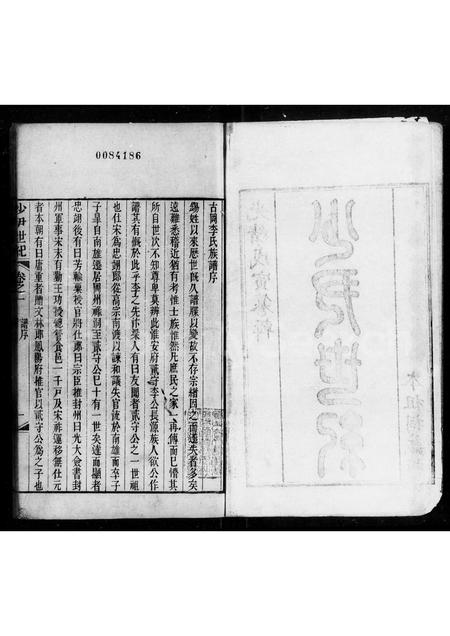 0084186
少尹世紀
古岡李氏族譜序
錫姓以來歷世既久譜牒以變故不存宗緒因之而遺失者多矣
遠難悉稽近猶有考惟士族惟然凡庶民之家一再傳而已懵其
所自世次不知尊卑莫辨此淮安府貳守李公長源族人欲公作
譜其有慨於此乎李之先汴梁人有曰友聞者貳守公之一世祖
也仕宋為忠翊郎從高宗南渡以諫和議失官流於南雄而卒子
子皐自南雄遷於岡州祿洞至貳守公已十有一世矣達而顯者
忠翊後有曰芳輸粟授官將仕郎曰宗臣權封州曰光大僉書封
州軍事宋末有勤王功授總管食邑一千戶及宋祚運移無仕元
者本朝有曰唐重者贈文林郎鳳陽府推官以貳守公為之子也
少尹世紀 卷之一 譜序 一